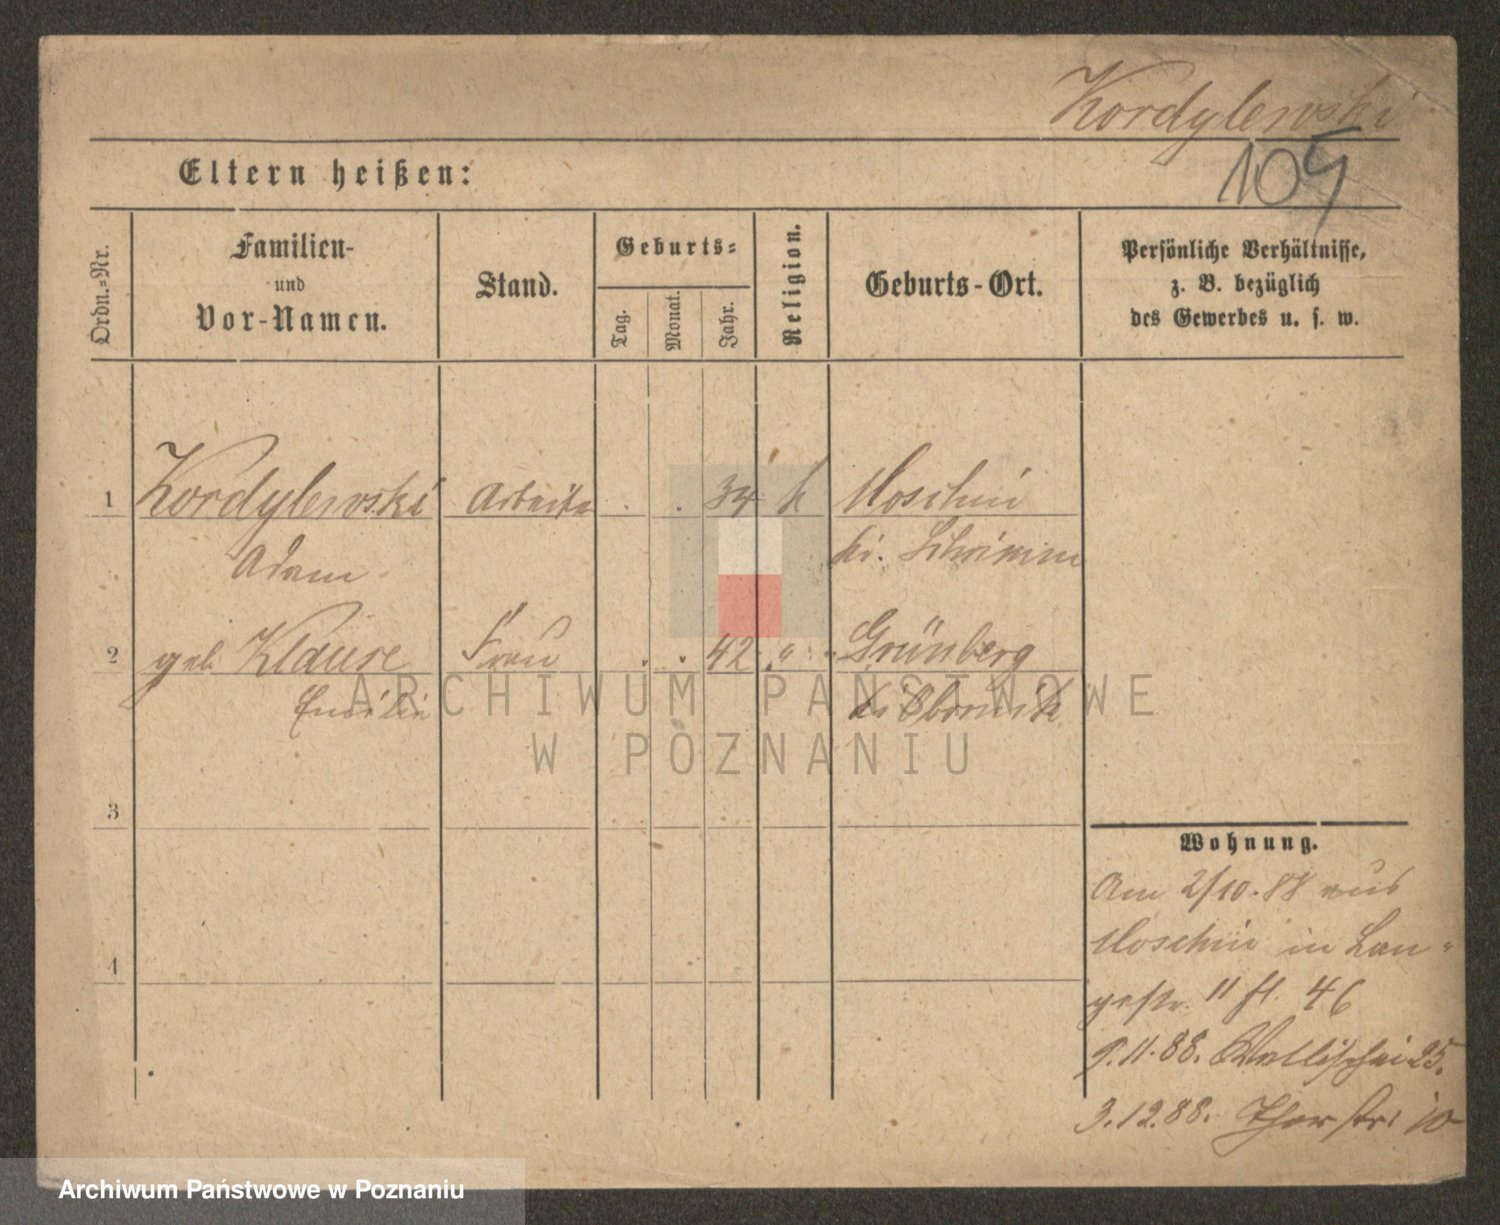 Kordylewski
105
Eltern heißen:
Ordn.-Nr.
Familien-
und
Vor-Namen.
Stand.
Geburts-
Tag.
Monat.
Jahr.
Religion.
Geburts-Ort.
Persönliche Verhältnisse,
z. B. bezüglich
des Gewerbes u. s. w.
1 Kordylewski Arbeiter . . 34 k Moschin
Adam kr. Schrimm
2 geb. Klause Frau . . 42 " Grünberg
Emilie kr Obornik
ARCHIWUM PAŃSTWOWE
W POZNANIU
3
4
Wohnung.
Am 2/10.88 aus
Moschin in Lan-
gestr. 11 fl. 46
9.11.88. Wallischei 25.
3.12.88. Thorstr. 10
Archiwum Państwowe w Poznaniu